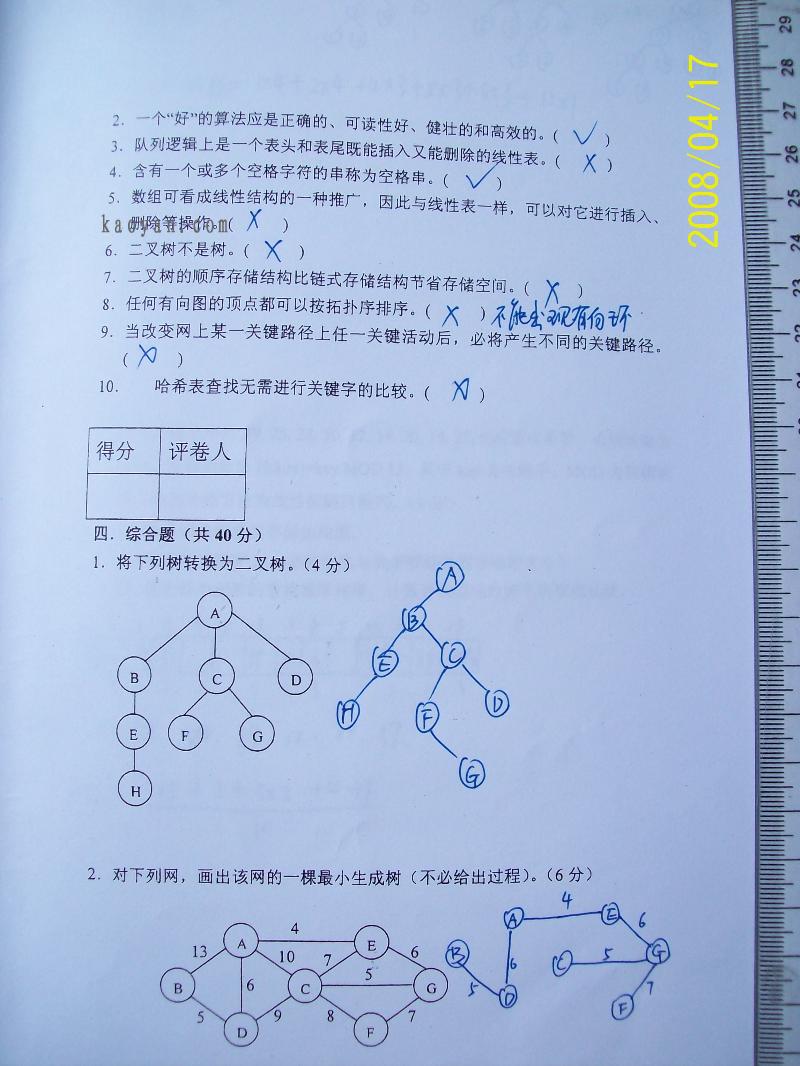 2. 一个“好”的算法应是正确的、可读性好、健壮的和高效的。( ✓ )
3. 队列逻辑上是一个表头和表尾既能插入又能删除的线性表。( X )
4. 含有一个或多个空格字符的串称为空格串。( ✓ )
5. 数组可看成线性结构的一种推广，因此与线性表一样，可以对它进行插入、
删除等操作。( X )
kaoyan.com
6. 二叉树不是树。( X )
7. 二叉树的顺序存储结构比链式存储结构节省存储空间。( X )
8. 任何有向图的顶点都可以按拓扑序排序。( X ) 不能出现有向环
9. 当改变网上某一关键路径上任一关键活动后，必将产生不同的关键路径。
( X )
10. 哈希表查找无需进行关键字的比较。( X )
得分 评卷人
四. 综合题（共 40 分）
1. 将下列树转换为二叉树。(4 分)
A
B C D
E F G
H
A
B
E C
H F D
G
2. 对下列网，画出该网的一棵最小生成树（不必给出过程）。(6 分)
A 4 E
13 10 7 6
B 6 C 5 G
5 9 8 7
D F
A 4 E
B 6 C 5 G
5 6 7
D F
2008/04/17
29
28
27
26
25
24
23
22
21